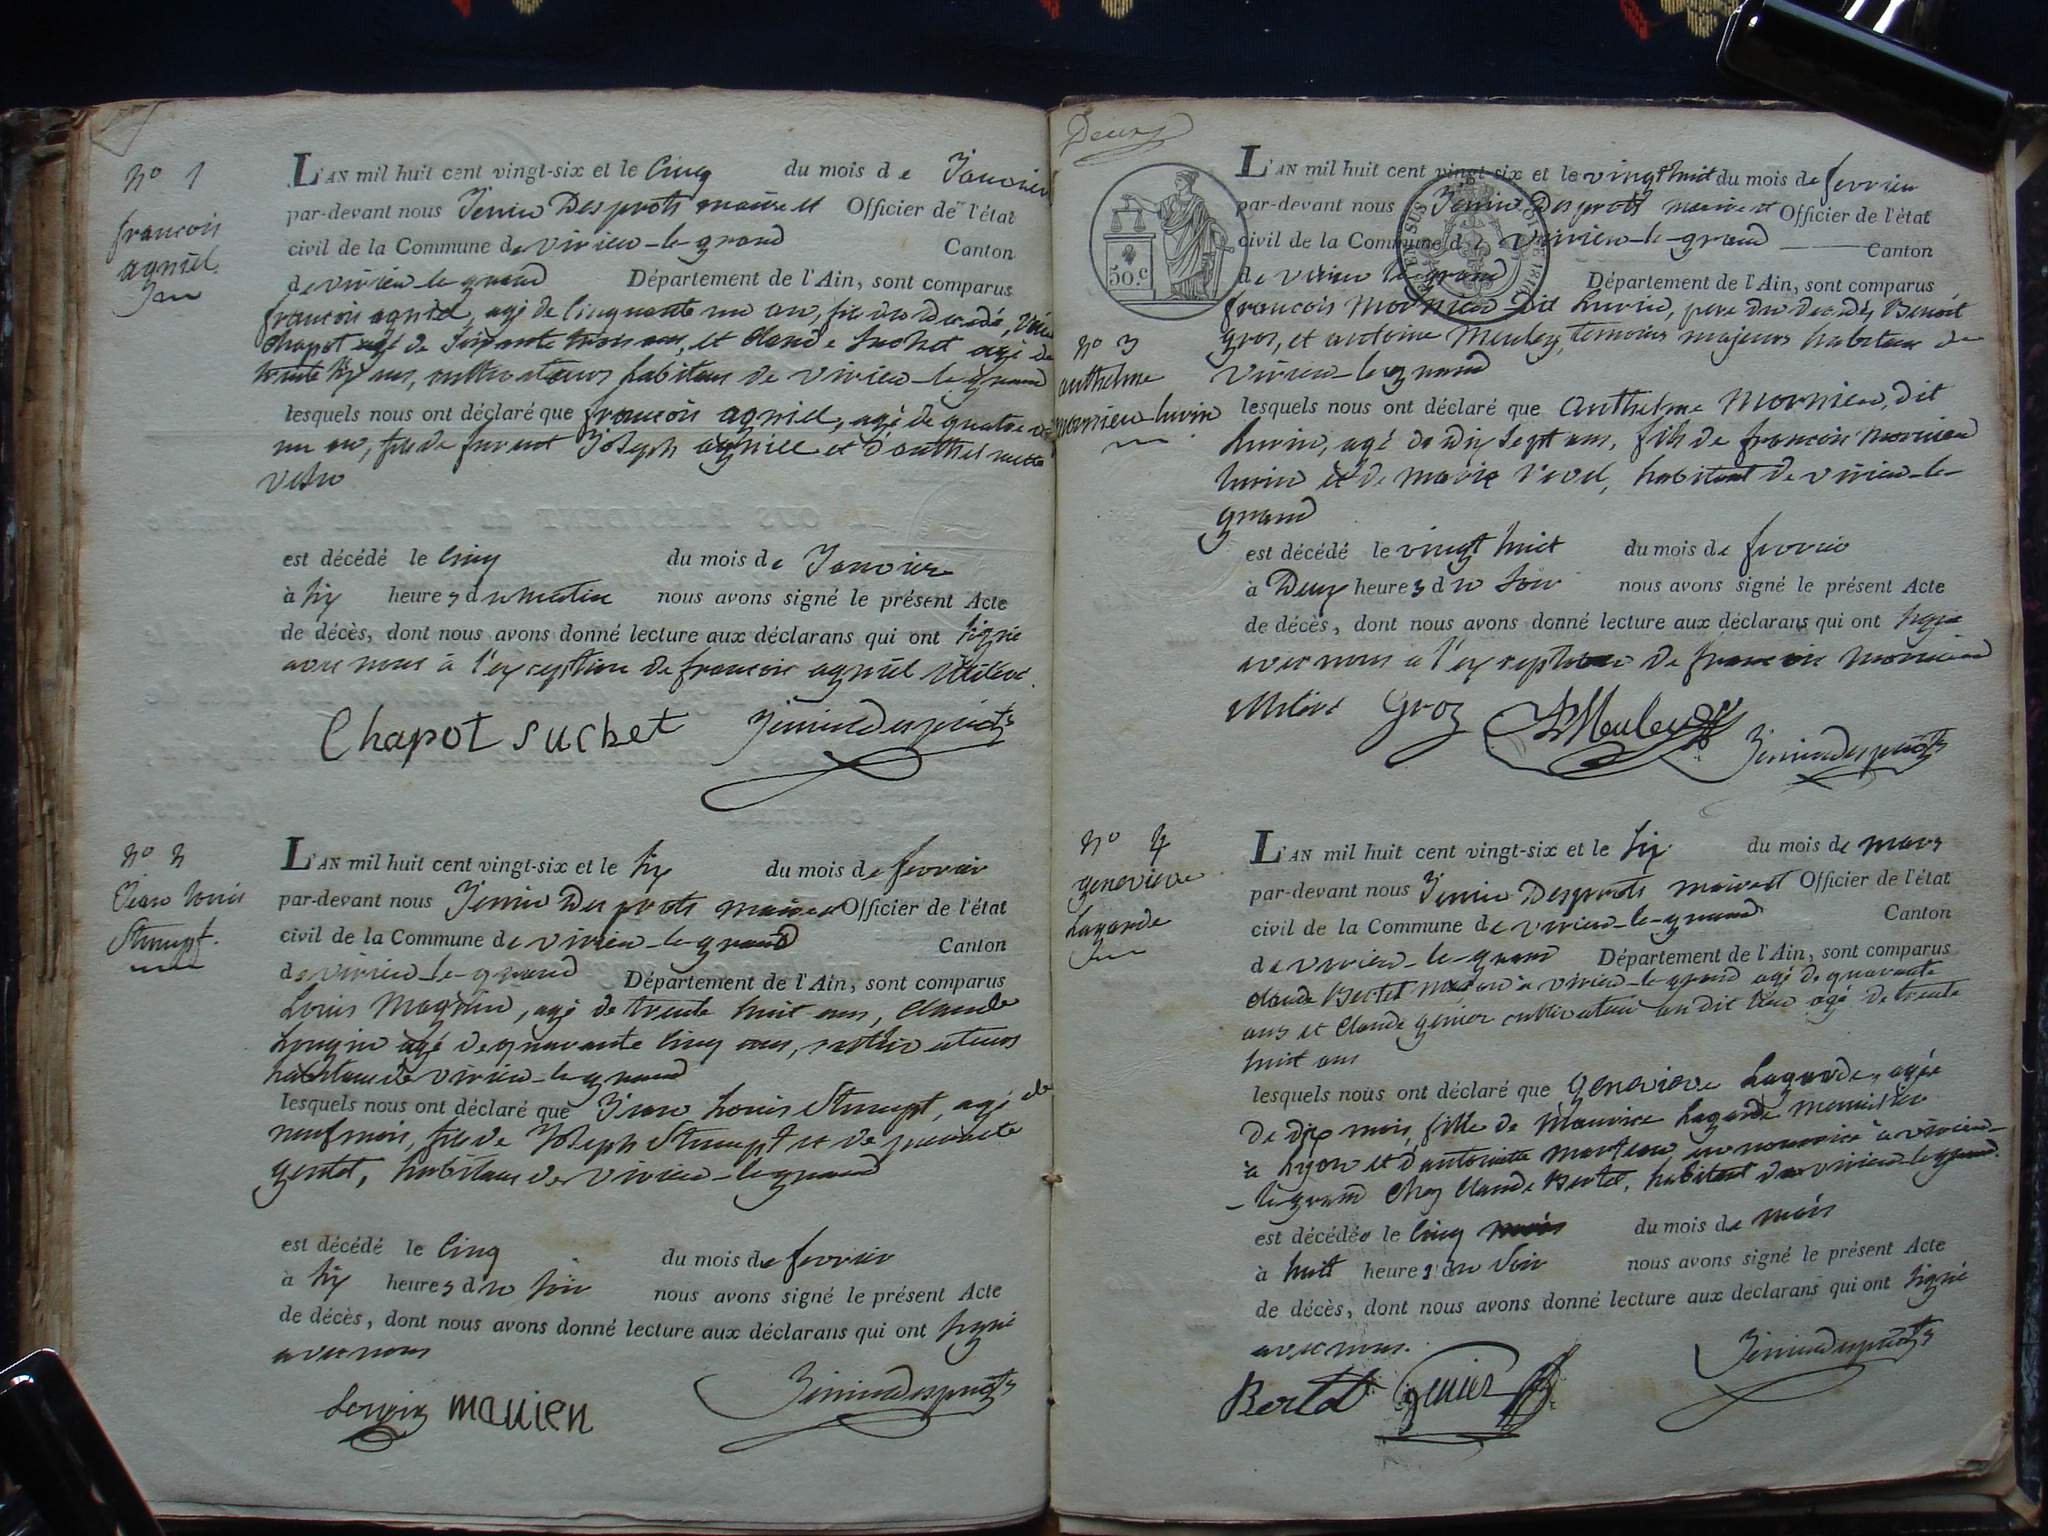 N° 1
françois
agniel
L'AN mil huit cent vingt-six et le cinq du mois de Janvier
par-devant nous Jenin Desprots maire et Officier de l'état
civil de la Commune de virieu-le-grand Canton
de virieu-le-grand Département de l'Ain, sont comparus
françois agniel, agé de cinquante un an, fils du décédé,
Chapot agé de soixante trois ans, et Claude Suchet agé de
trente six ans, cultivateurs habitans de virieu-le-grand
lesquels nous ont déclaré que françois agniel, agé de quatre
un an, fils de furent Joseph agniel et d'anthelmette
est décédé le cinq du mois de Janvier
à six heures du matin nous avons signé le présent Acte
de décès, dont nous avons donné lecture aux déclarans qui ont signé
avec nous à l'exception de françois agniel illiteré.
Chapot Suchet Jenin Desprots
N° 2
Jean Louis
Stumpf.
L'AN mil huit cent vingt-six et le six du mois de fevrier
par-devant nous Jenin Desprots maire et Officier de l'état
civil de la Commune de virieu-le-grand Canton
de virieu-le-grand Département de l'Ain, sont comparus
Louis Magnin, agé de trente huit ans, Claude
Longin agé de quarante cinq ans, cultivateurs
habitans de virieu-le-grand
lesquels nous ont déclaré que Jean Louis Stumpf, agé de
neuf mois, fils de Joseph Stumpf et de
gentet, habitans de virieu-le-grand
est décédé le cinq du mois de fevrier
à six heures du soir nous avons signé le présent Acte
de décès, dont nous avons donné lecture aux déclarans qui ont signé
avec nous
Longin manien Jenin Desprots
Deux
50 c.
L'AN mil huit cent vingt-six et le vingt huit du mois de fevrier
par-devant nous Jenin Desprots maire et Officier de l'état
civil de la Commune de virieu-le-grand Canton
de virieu le grand Département de l'Ain, sont comparus
françois Mornieu dit hurin, pere du decédé, Benoit
gros, et antoine Meuley, temoins majeurs habitans de
virieu-le-grand
N° 3
anthelme
mornieu-hurin
lesquels nous ont déclaré que Anthelme Mornieu, dit
hurin, agé de dix sept ans, fils de françois Mornieu
hurin et de marie, habitant de virieu-le-
grand
est décédé le vingt huit du mois de fevrier
à Deux heures du soir nous avons signé le présent Acte
de décès, dont nous avons donné lecture aux déclarans qui ont signé
avec nous à l'exception de françois Mornieu
illiteré Groz Meuley Jenin Desprots
N° 4
genevieve
Lagarde
L'AN mil huit cent vingt-six et le six du mois de mars
par-devant nous Jenin Desprots maire et Officier de l'état
civil de la Commune de virieu-le-grand Canton
de virieu-le-grand Département de l'Ain, sont comparus
Claude Bertet à virieu-le-grand agé de quarante
ans et Claude genier cultivateur au dit lieu agé de trente
huit ans
lesquels nous ont déclaré que genevieve Lagarde, agée
de dix mois, fille de Maurice Lagarde menuisier
à Lyon et d'antoinette, en nourrice à virieu-
-le-grand chez Claude Bertet, habitant de virieu-le-grand.
est décédée le cinq du mois de mars
à huit heures du soir nous avons signé le présent Acte
de décès, dont nous avons donné lecture aux déclarans qui ont signé
avec nous.
Bertet genier Jenin Desprots